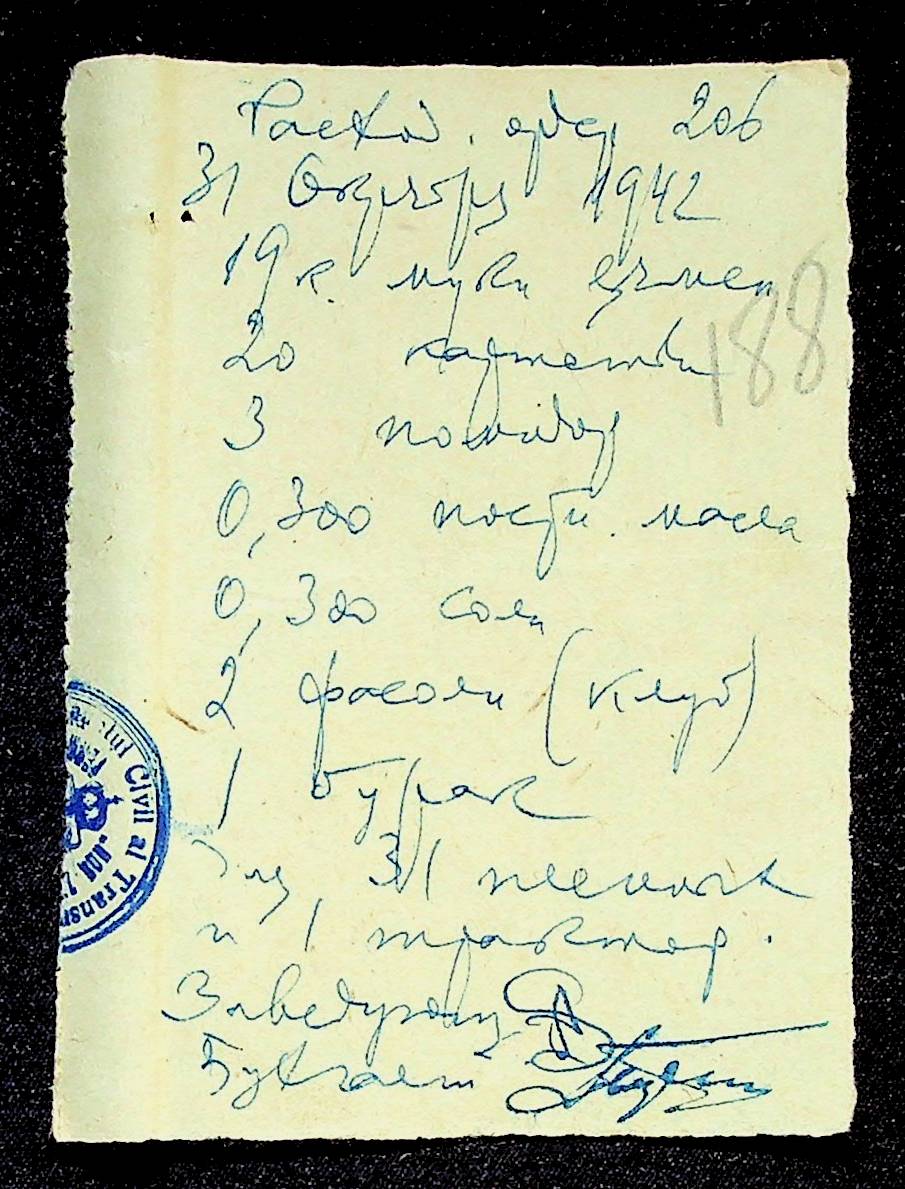 Расход. ордер 206
31 Октября 1942
19 к. муки ячмен
20 картошки
3 помидор
0,300 пост. масла
0,300 соли
2 фасоли (клуб)
1 бурак
31
и 1 трактор.
188
Заведующ
Бухгалт
lui Civil al Trans